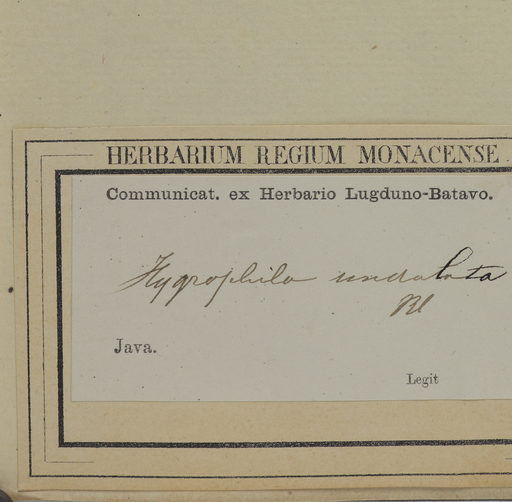 HERBARIUM REGIUM MONACENSE.
Communicat. ex Herbario Lugduno-Batavo.
Hygrophila undulata
Bl
Java.
Legit